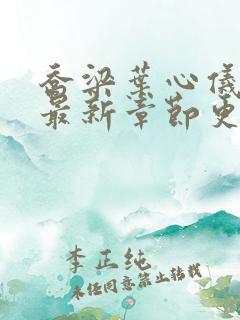 乔梁叶心仪
最新章节更
李正纯
未经同意禁止转载